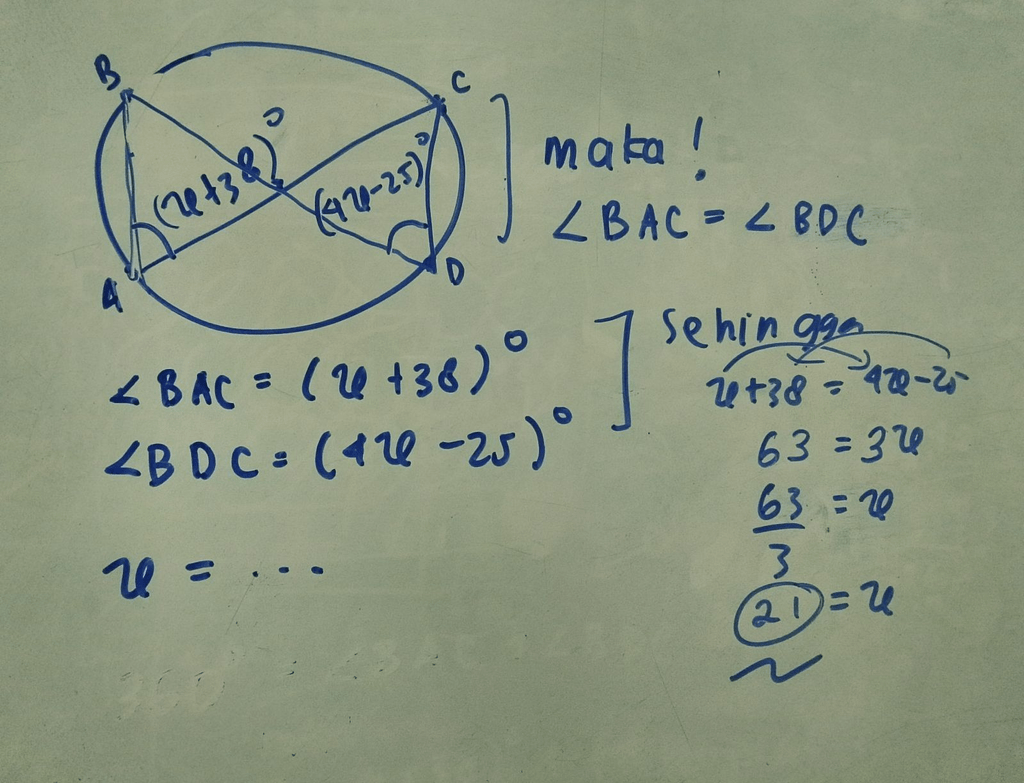 B
C
(x+38)°
(4x-25)°
A
D
maka!
∠BAC = ∠BDC
∠BAC = (x+38)°
∠BDC = (4x-25)°
x = ...
Sehingga
x+38 = 4x-25
63 = 3x
63/3 = x
21 = x